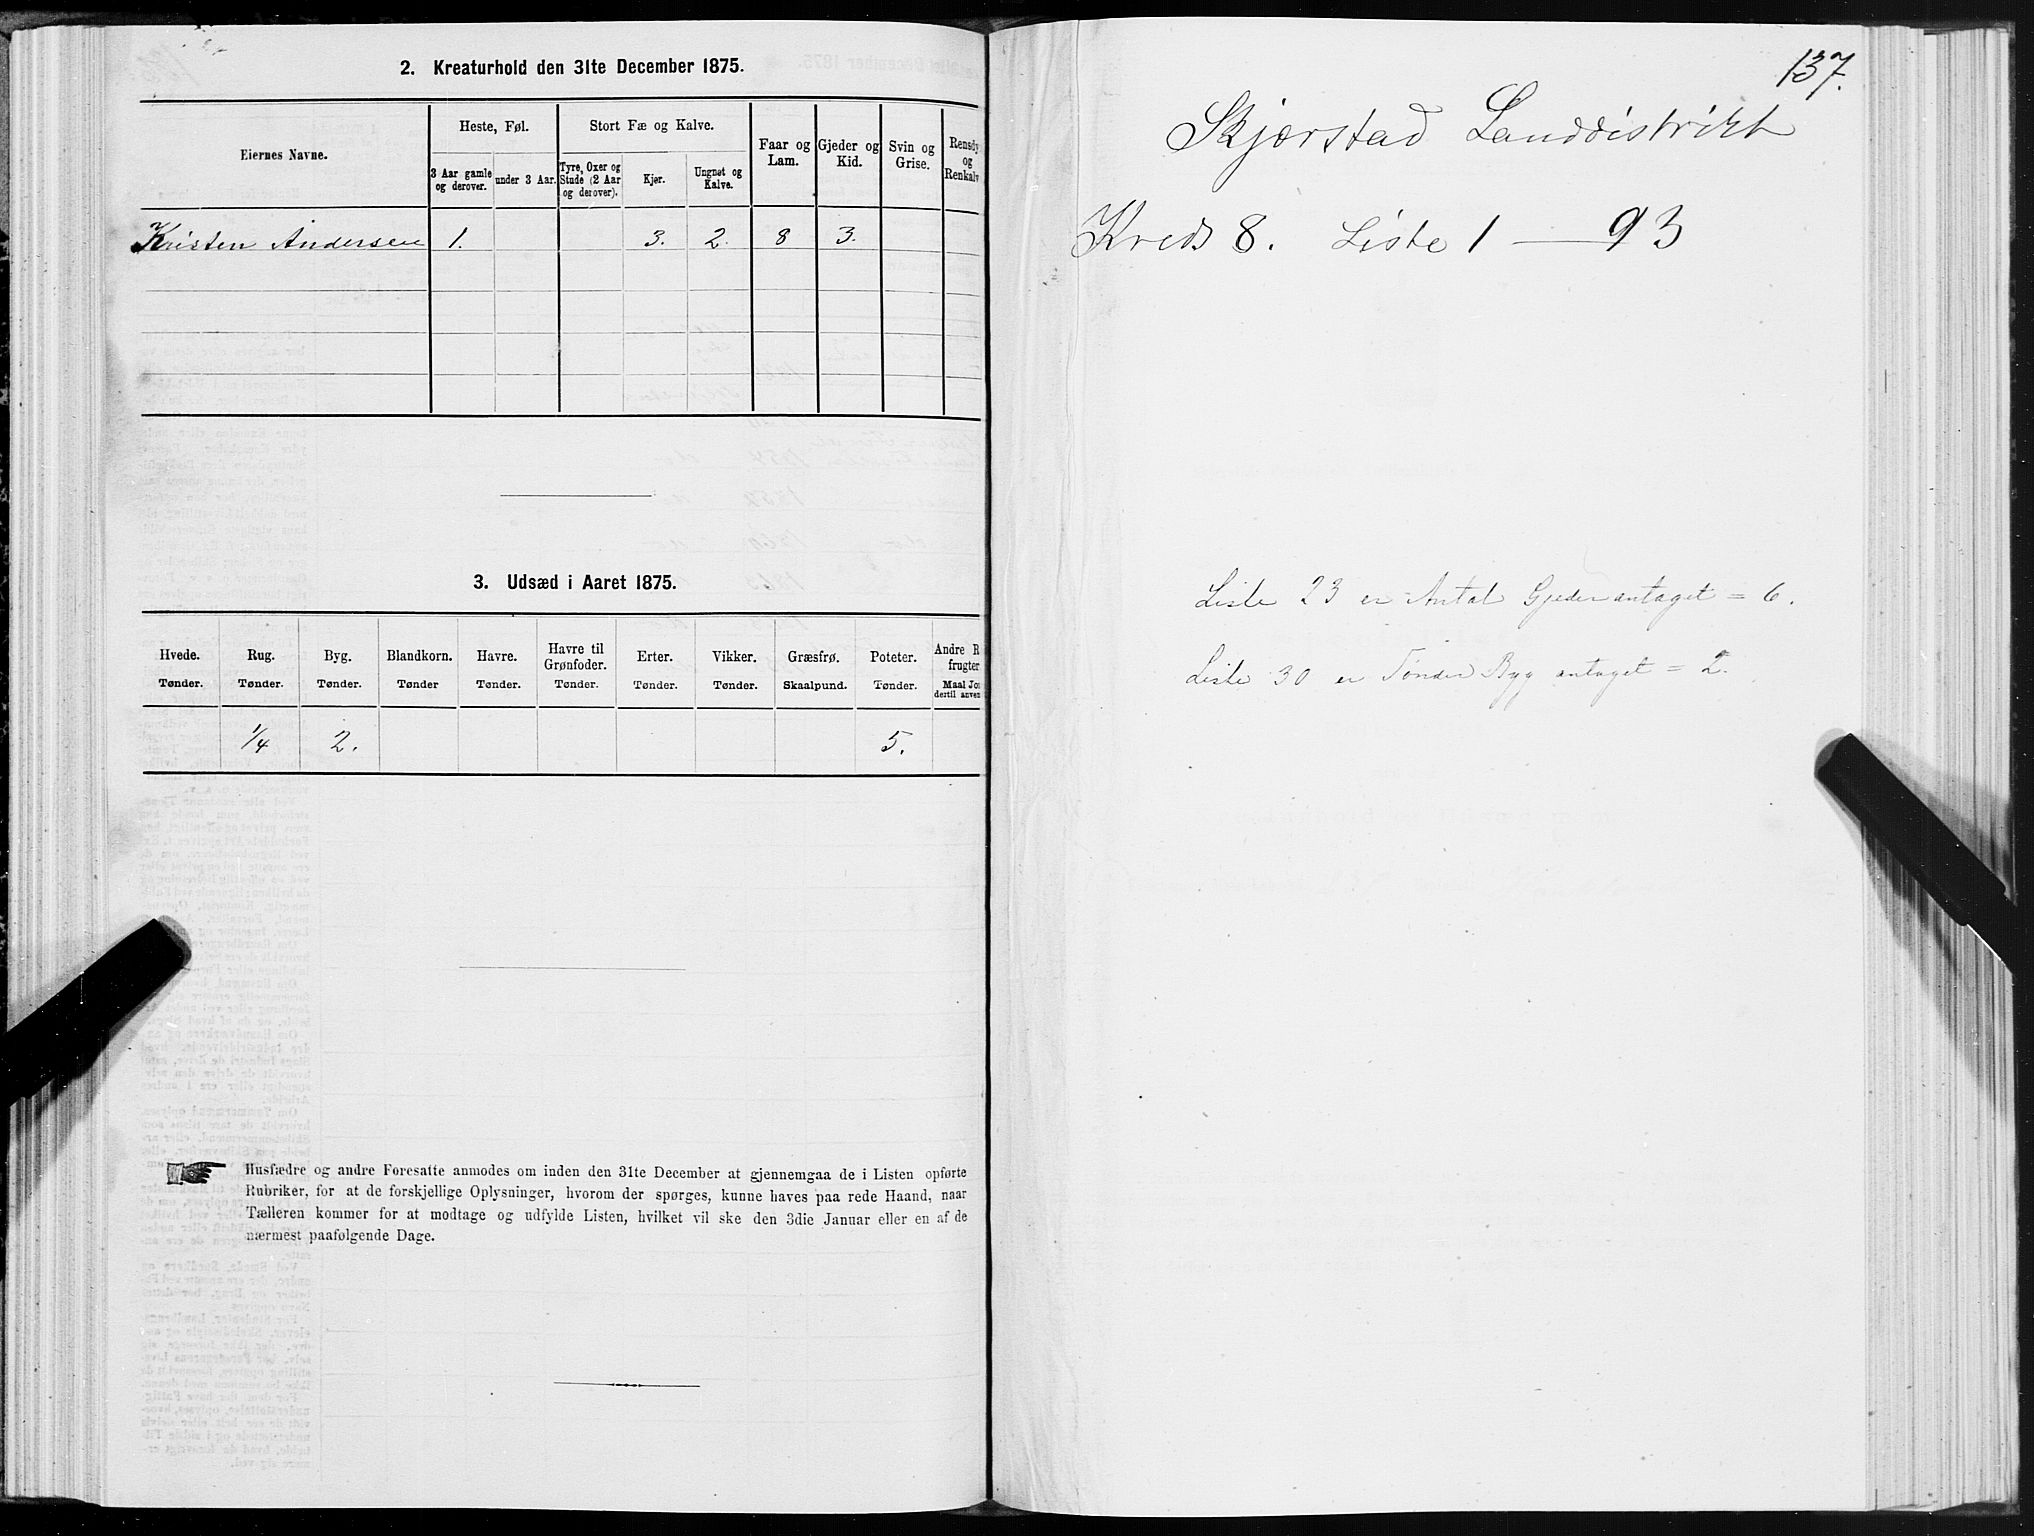 2. Kreaturhold den 31te December 1875.
Eiernes Navne.
Heste, Føl.
Stort Fæ og Kalve.
Faar og Lam.
Gjeder og Kid.
Svin og Grise.
Rensdy
og
Renkalv
3 Aar gamle og derover.
under 3 Aar.
Tyre, Oxer og Stude (2 Aar og derover).
Kjør.
Ungnøt og Kalve.
Kristen Andersen 1. 3. 2. 8 3.
3. Udsæd i Aaret 1875.
Hvede. Rug. Byg. Blandkorn. Havre. Havre til Grønfoder. Erter. Vikker. Græsfrø. Poteter. Andre R
frugter
Tønder. Tønder. Tønder. Tønder Tønder. Tønder. Tønder. Tønder. Skaalpund. Tønder. Maal Jor
dertil anven
1/4 2. 5.
Husfædre og andre Foresatte anmodes om inden den 31te December at gjennemgaa de i Listen opførte
Rubriker, for at de forskjellige Oplysninger, hvorom der spørges, kunne haves paa rede Haand, naar
Tælleren kommer for at modtage og udfylde Listen, hvilket vil ske den 3die Januar eller en af de
nærmest paafølgende Dage.
137.
Skjerstad Landdistrikt
Kreds 8. Liste 1 — 93
Liste 23 er Antal Gjeder antaget = 6.
Liste 30 er Tønder Byg antaget = 2.